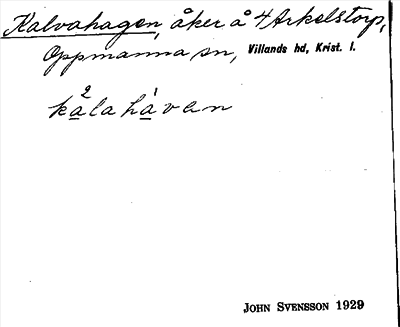 Kalvahagen, åker å 4 Arkelstorp,
Oppmanna sn, Villands hd, Krist. l.
ka²laha¹van
JOHN SVENSSON 1929